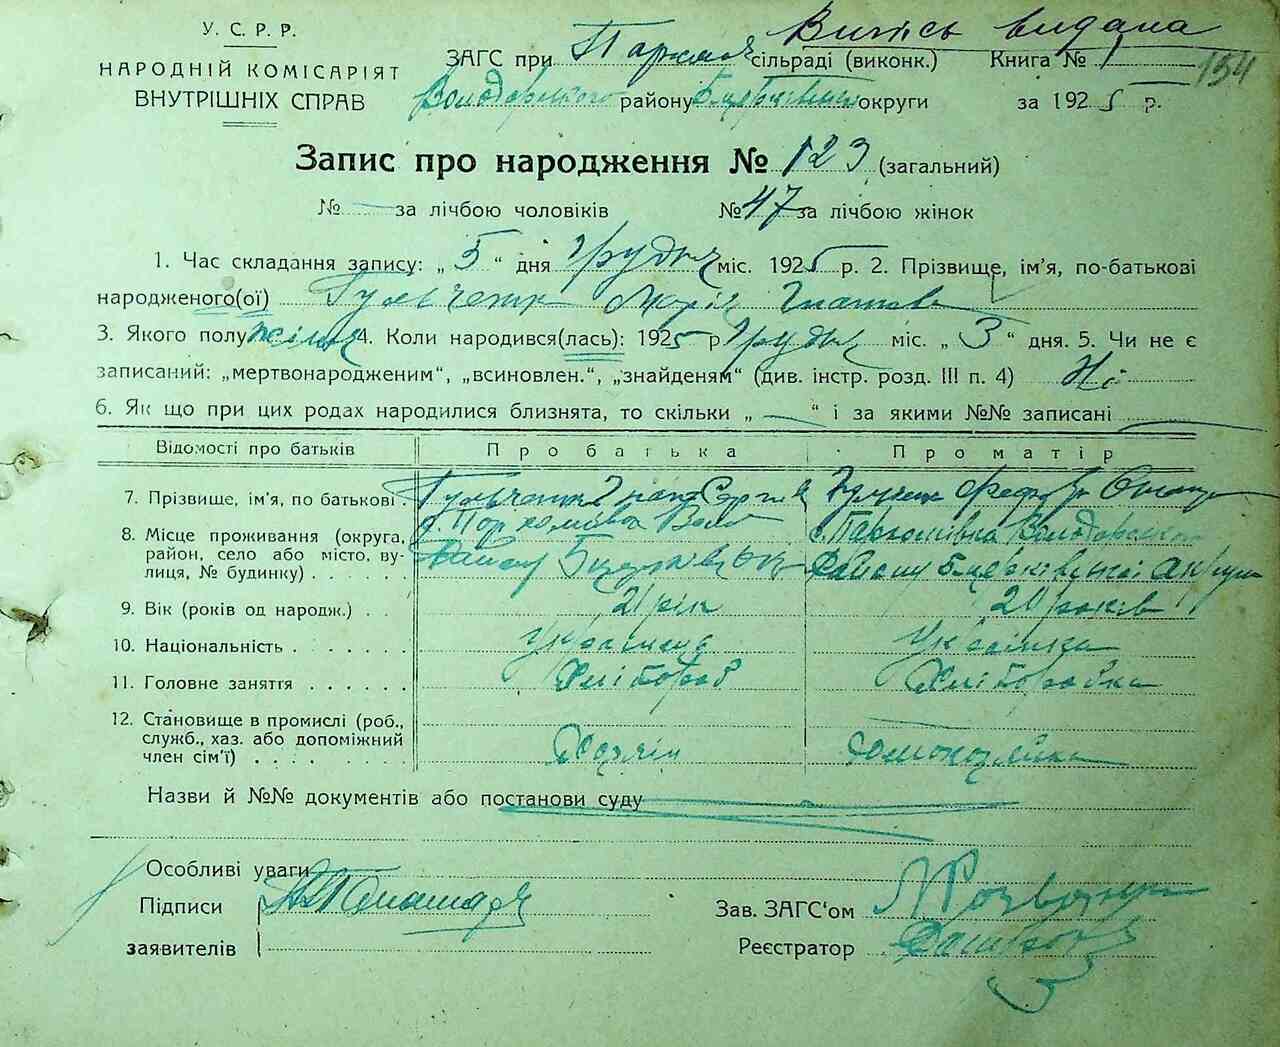 Випись видана
У. С. Р. Р.
НАРОДНІЙ КОМІСАРІЯТ
ВНУТРІШНІХ СПРАВ
154
ЗАГС при Пархом сільраді (виконк.) Книга № 1
Володарського району Білоцерківськ округи за 1925 р.
Запис про народження № 123 (загальний)
№ — за лічбою чоловіків № 47 за лічбою жінок
1. Час складання запису: „ 5 “ дня Грудня міс. 1925 р. 2. Прізвище, ім'я, по-батькові
народженого(ої) Гульченко Марія Гнатова
3. Якого полу жіноч 4. Коли народився(лась): 1925 р Грудня міс. „ 3 “ дня. 5. Чи не є
записаний: „мертвонародженим“, „всиновлен.“, „знайденям“ (див. інстр. розд. III п. 4) Ні
6. Як що при цих родах народилися близнята, то скільки „ — “ і за якими №№ записані —
Відомості про батьків Про батька Про матір
7. Прізвище, ім'я, по батькові. Гульченко Гнат Сергій
8. Місце проживання (округа, район, село або місто, вулиця, № будинку) с. Пархомівка Волод с. Пархомівка Володарського
району району Білоцерківської округи
9. Вік (років од народж.) 21 рік 20 років
10. Національність Українець Українка
11. Головне заняття Хлібороб Хліборобка
12. Становище в промислі (роб.,
служб., хаз. або допоміжний
член сім'ї) Хазяїн домохазяйка
Назви й №№ документів або постанови суду
Особливі уваги
Підписи
заявителів
Зав. ЗАГС'ом
Реєстратор